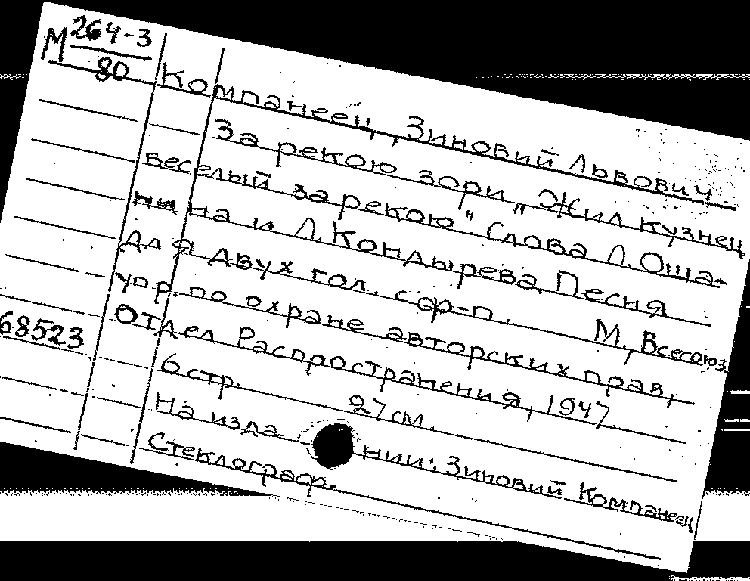 М 264-3
80
Компанеец, Зиновий Львович
За рекою зори "Жил кузнец
веселый за рекою" Слова Л. Оша-
нина и Л. Кондырева. Песня
для двух гол. с ф-п. М., Всесоюз.
упр. по охране авторских прав,
68523
Отдел Распространения, 1947
6 стр. 27 см.
На издании: Зиновий Компанеец
Стеклограф.